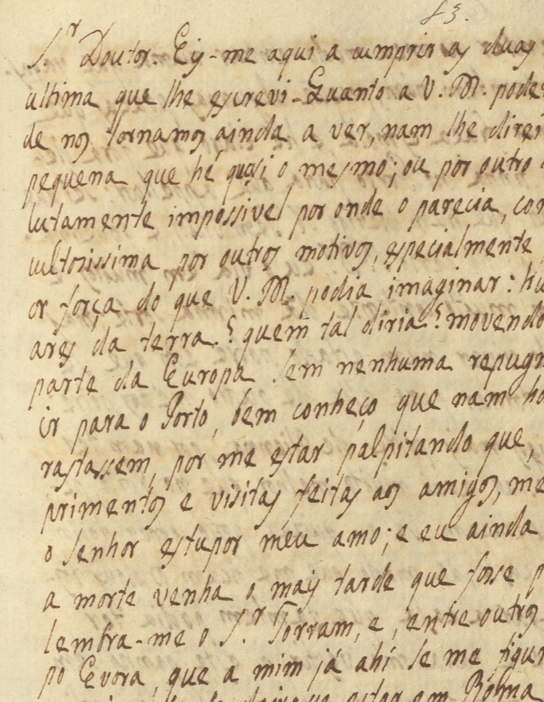 43.
S.r Doutor. Eis-me aqui a cumprir as duas
ultima que lhe escrevi. Quanto a V. M. pode
de nos tornamos ainda a ver, nam lhe direi
pequena que hé quasi o mesmo; ou por outro
lutamente impossivel por onde o parecia, con
cultosissima por outros motivos, especialmente
or força do que V. M. podia imaginar: hu
ares da terra. quem tal diria? movendo
parte da Europa sem nenhuma repugn
ir para o Porto, bem conheço que nam ho
rastassem, por me estar palpitando que,
primentos e visitas feitas aos amigos, me
o senhor estupor meu amo; e eu ainda
a morte venha o mais tarde que fosse p
lembra-me o S.r Torram, e, entre outros
po Evora, que a mim já ahi se me figur
estar em Roma